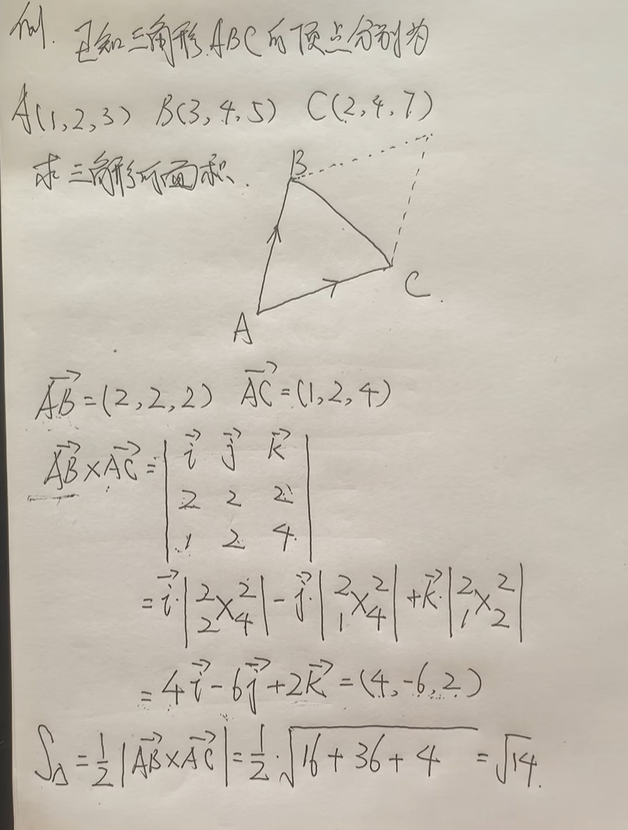 例. 已知三角形ABC的顶点分别为
A(1,2,3) B(3,4,5) C(2,4,7)
求三角形的面积.
B
C.
A
\vec{AB}=(2,2,2) \vec{AC}=(1,2,4)
\vec{AB}×\vec{AC}=|\vec{i} \vec{j} \vec{k}|
2 2 2
1 2 4
=\vec{i}·|2 2; 2 4|-\vec{j}·|2 2; 1 4|+\vec{k}·|2 2; 1 2|
=4\vec{i}-6\vec{j}+2\vec{k}=(4,-6,2)
S_Δ=\frac{1}{2}|\vec{AB}×\vec{AC}|=\frac{1}{2}·\sqrt{16+36+4}=\sqrt{14}.